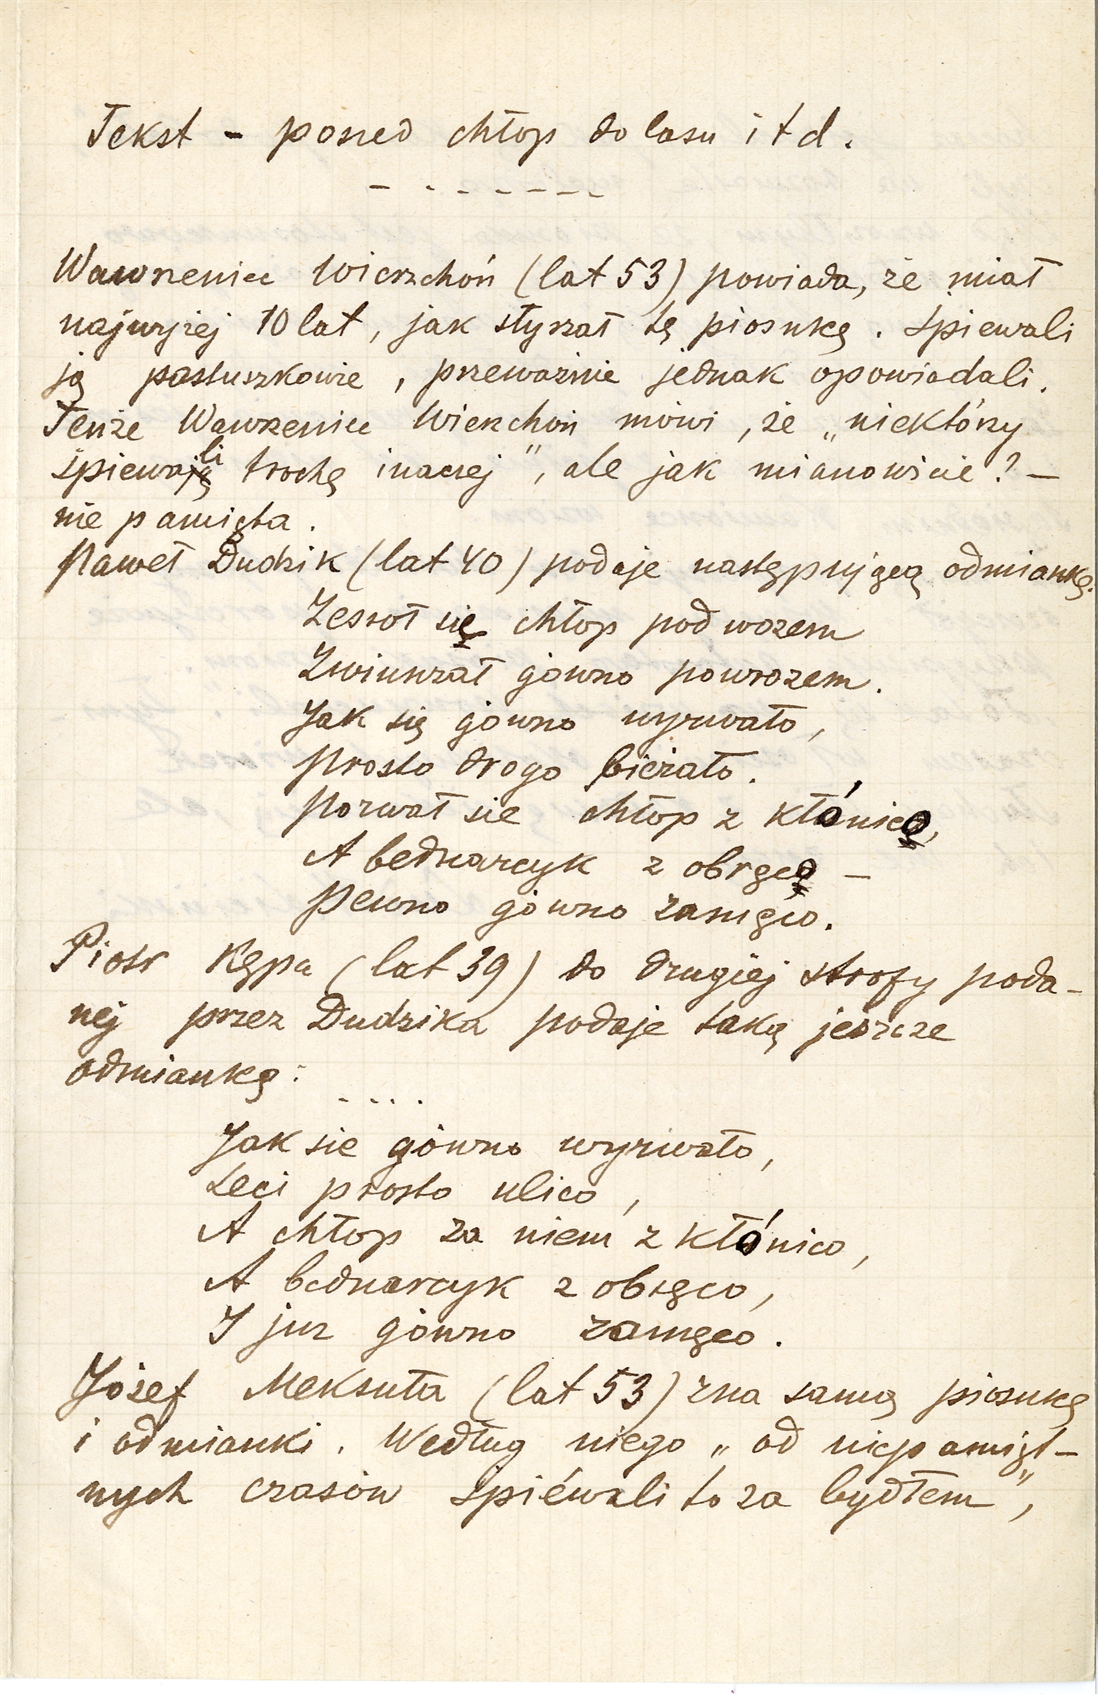 Tekst - poszed chłop do lasu i t d.
- - - - - - -
Wawrzeniec Wierzchoń (lat 53) powiada, że miał
najwyżej 10 lat, jak słyszał tę piosnkę. Śpiewali
ją pastuszkowie, przeważnie jednak opowiadali.
Tenże Wawrzeniec Wierzchoń mówi, że „niektórzy
śpiewali trochę inaczej”, ale jak mianowicie? –
nie pamięta.
Paweł Dudzik (lat 40) podaje następującą odmiankę.
Zesroł się chłop pod wozem
Zwiunzał gówno powrozem.
Jak się gówno wyrwało,
Prosto drogo bieżało.
Porwał sie chłop z kłónicą,
A bednarcyk z obręcą –
Pewno gówno zamęco.
Piotr Kępa (lat 39) do drugiej strofy poda-
nej przez Dudzika podaje taką jeszcze
odmiankę:
- - - -
Jak sie gówno wyrwało,
Leci prosto ulico,
A chłop za niem z kłónico,
A bednarcyk z obręco,
I juz gówno zamęco.
Józef Meksuła (lat 53) zna samą piosnkę
i odmianki. Według niego „od niepamięt-
nych czasów śpiéwali to za bydłem”,